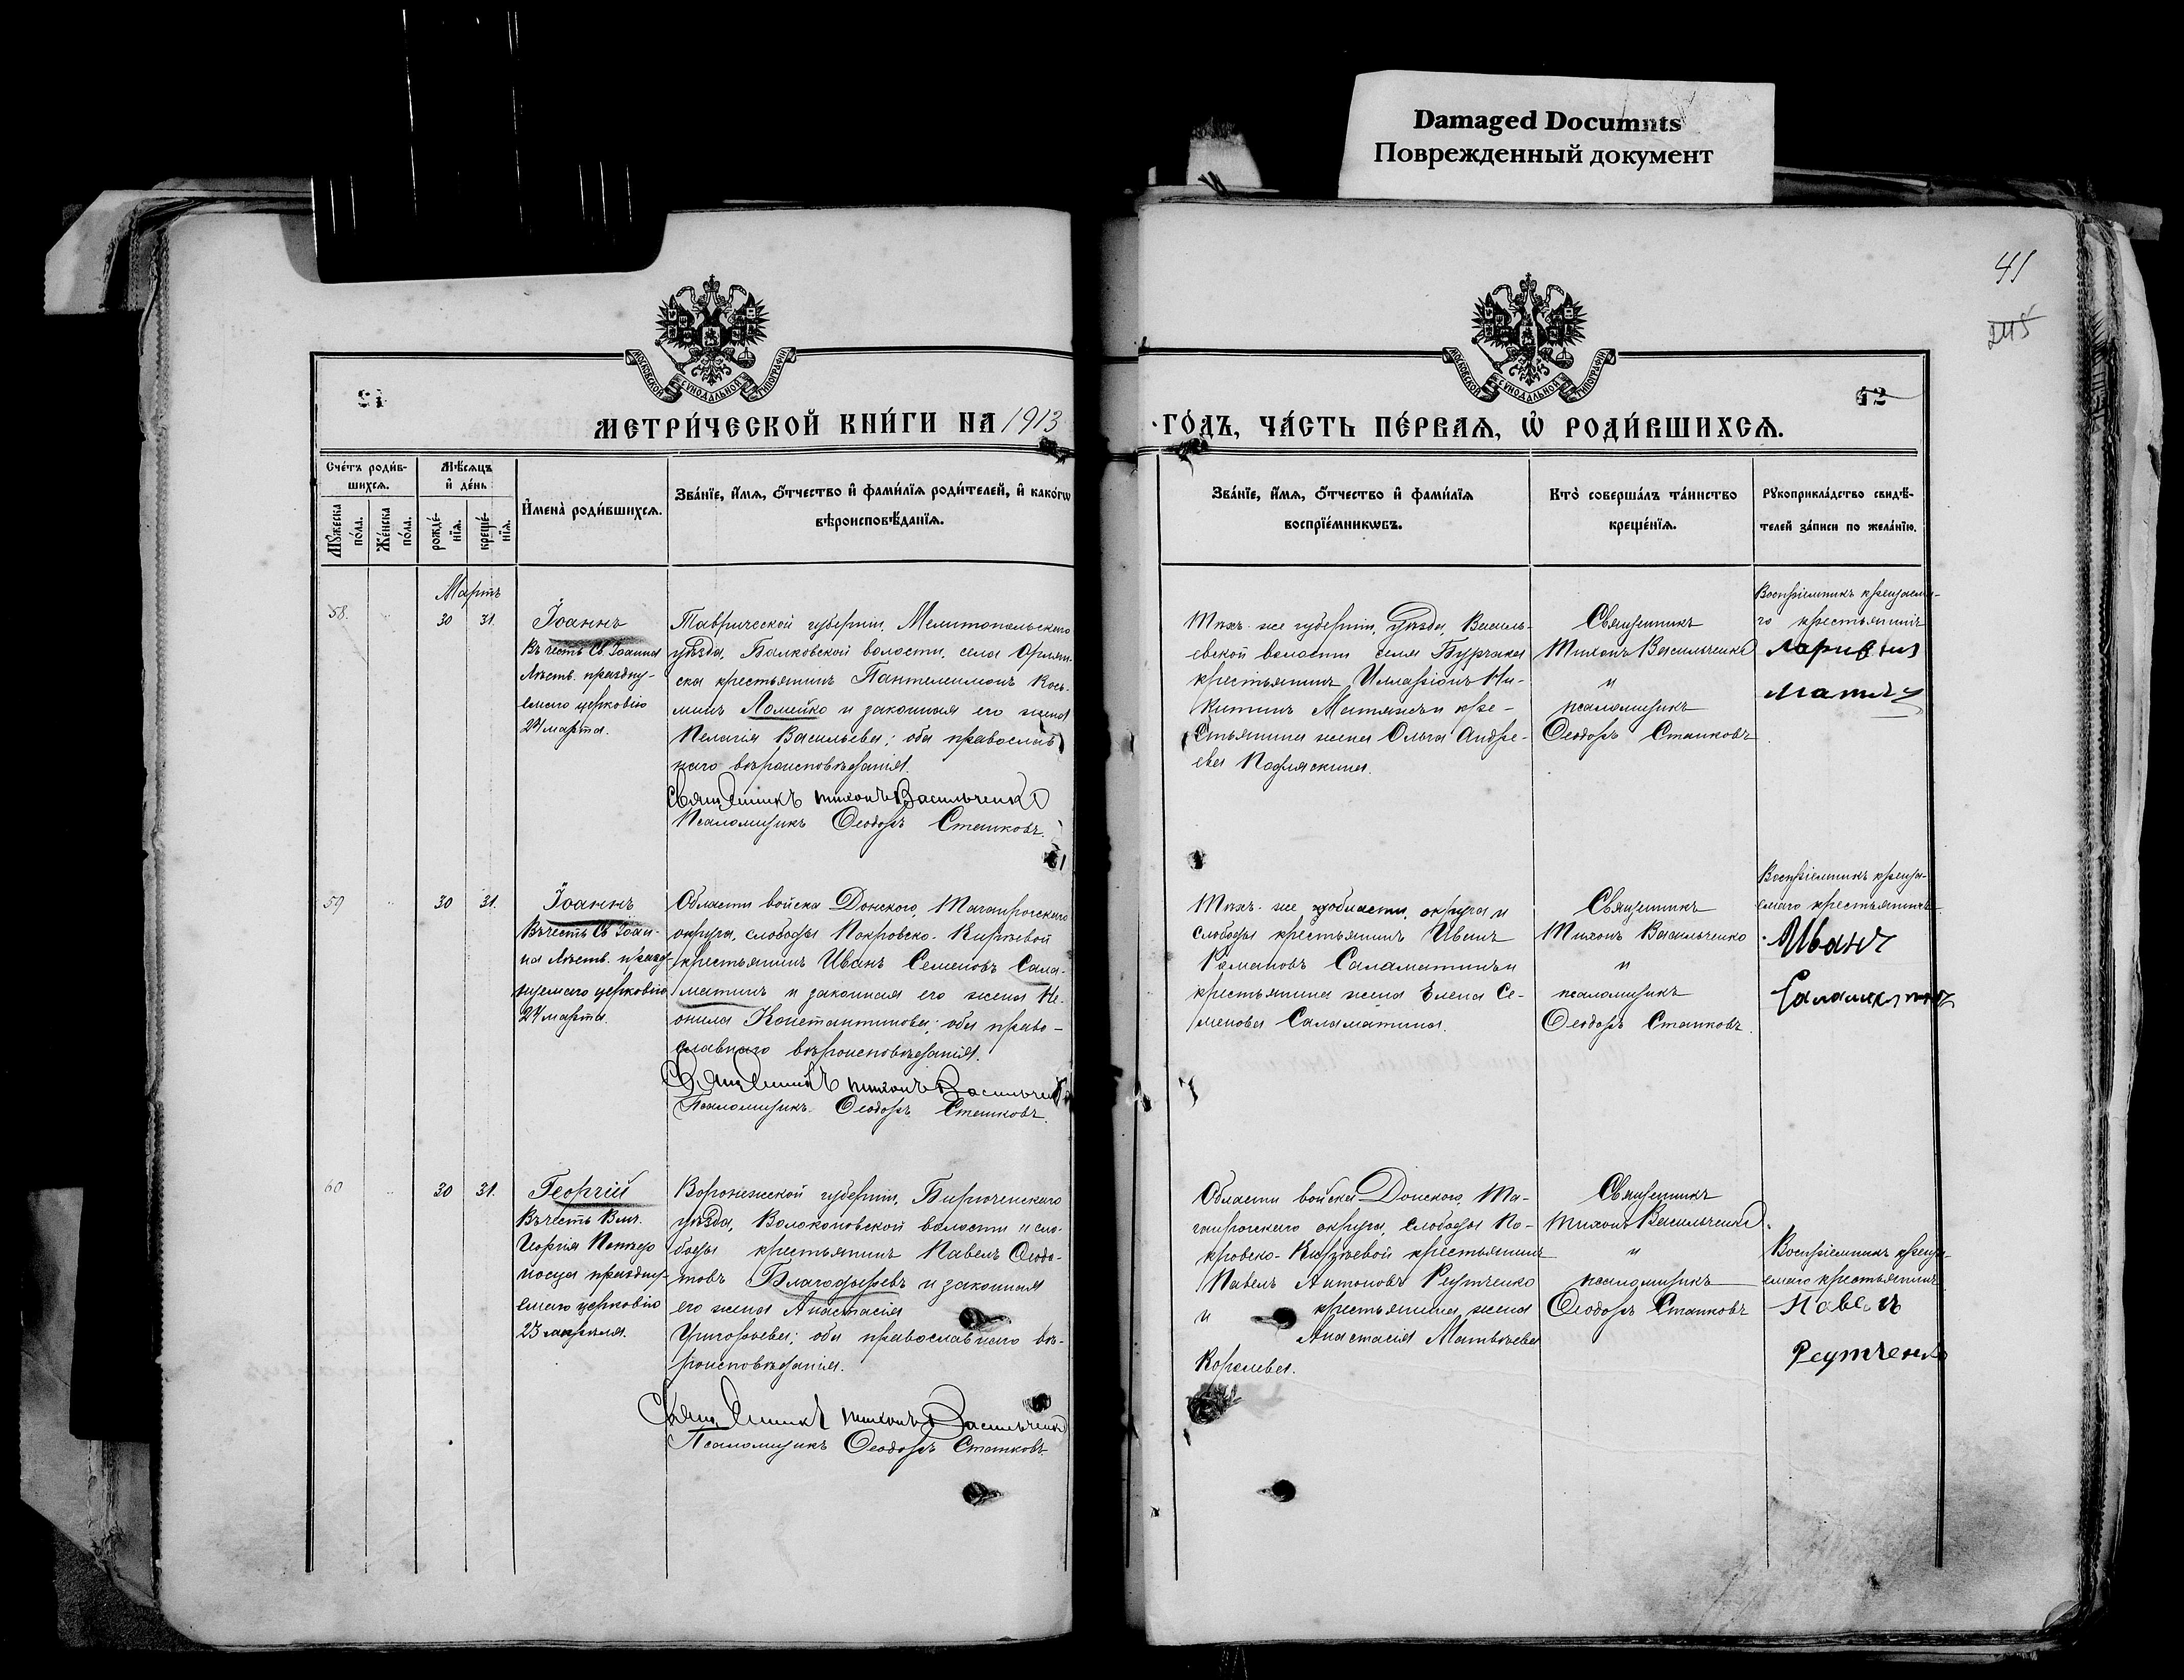 Damaged Documnts
Поврежденный документ
41
245
42
МОСКОВСКОЙ СУНОДАЛЬНОЙ ТИПОГРАФІИ
МОСКОВСКОЙ СУНОДАЛЬНОЙ ТИПОГРАФІИ
МЕТРИ́ЧЕСКОЙ КНИ́ГИ НА 1913
ГО́ДЪ, ЧА́СТЬ ПЕ́РВАѦ, Ѡ҆ РОДИ́ВШИХСѦ.
Сче́тъ роди́в-
шихсѧ.
Мꙋ́жеска по́ла.
Же́нска по́ла.
Мѣ́сѧцъ и҆ де́нь
рожде́-нїѧ.
креще́-нїѧ.
И҆мена̀ роди́вшихсѧ.
Зва́нїе, и҆́мѧ, ѻ҆́тчество и҆ фами́лїѧ роди́телей, и҆ како́гѡ
вѣроисповѣ́данїѧ.
Зва́нїе, и҆́мѧ, ѻ҆́тчество и҆ фами́лїѧ
воспрїе́мникѡвъ.
Кто̀ соверша́лъ та́инство
креще́нїѧ.
Рꙋкоприкла́дство свидѣ́-
телей за́писи по жела́нїю.
Мартъ
58. 30 31.
Іоаннъ
Въ честь Св. Іоанна
Лѣств. праздну-
емаго церковію
24 марта.
Таврической губерніи, Мелитопольскаго
уѣзда, Балковской волости, села Орлян-
ска крестьянинъ Пантелеимонъ Кось-
минъ Ломейко и законная его жена
Пелагія Васильева; оба православ
наго вѣроисповѣданія.
Священникъ Тихонъ Васильченко
Псаломщикъ Ѳеодоръ Сташковъ.
Тѣхъ-же губерніи, уѣзда, Василь-
евской волости села Бурчака
крестьянинъ Илларіонъ Ни-
китинъ Матяжъ и кре-
стьянина жена Ольга Андре-
ева Подляскина.
Священникъ
Тихонъ Васильченко
и
псаломщикъ
Ѳеодоръ Сташковъ.
Воспріемникъ крещаема-
го крестьянинъ
59 30 31.
Іоаннъ
Въ честь Св. Іоан-
на Лѣств. празд-
нуемаго церковію
24 марта.
Области войска Донского, Таганрогскаго
округа, слободы Покровско-Кирѣевой
крестьянинъ Иванъ Семеновъ Сала-
матинъ и законная его жена Не-
онила Константинова; оба право-
славнаго вѣроисповѣданія.
Священникъ Тихонъ Васильченко
Псаломщикъ Ѳеодоръ Сташковъ.
Тѣхъ-же области, округа и
слободы крестьянинъ Иванъ
Романовъ Саламатинъ и
крестьянина жена Елена Се-
менова Саламатина.
Священникъ
Тихонъ Васильченко
и
псаломщикъ
Ѳеодоръ Сташковъ.
Воспріемникъ креща-
емаго крестьянинъ
Иванъ
Саламатинъ
60 30 31.
Георгій
Въ честь Влм.
Георгія Побѣдо
носца праздну-
емаго церковію
23 апрѣля.
Воронежской губерніи, Бирюченскаго
уѣзда, Волоконовской волости и сло-
боды крестьянинъ Павелъ Ѳеодо-
товъ Благодыревъ и законная
его жена Анастасія
Григорьева; оба православнаго вѣ-
роисповѣданія.
Священникъ Тихонъ Васильченко
Псаломщикъ Ѳеодоръ Сташковъ
Области войска Донского, Та-
ганрогскаго округа, слободы По-
кровско-Кирѣевой крестьянинъ
Павелъ Антоновъ Реутченко
и крестьянина жена
Анастасія Матвѣева
Королева.
Священникъ
Тихонъ Васильченко.
и
псаломщикъ
Ѳеодоръ Сташковъ
Воспріемникъ креща-
емаго крестьянинъ
Павелъ
Реутченко